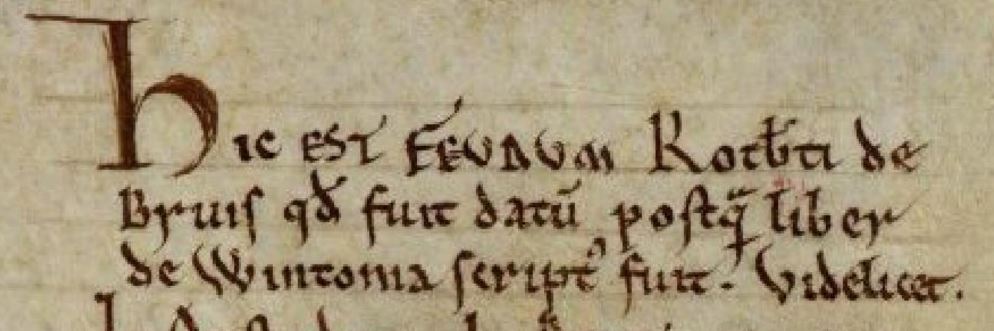 Hic EST FEUDUM Rotb̄ti de
Bruis qđ fuit datū postq̄ liber
de Wintonia sc̲ript⁹ fuit. Videlicet.